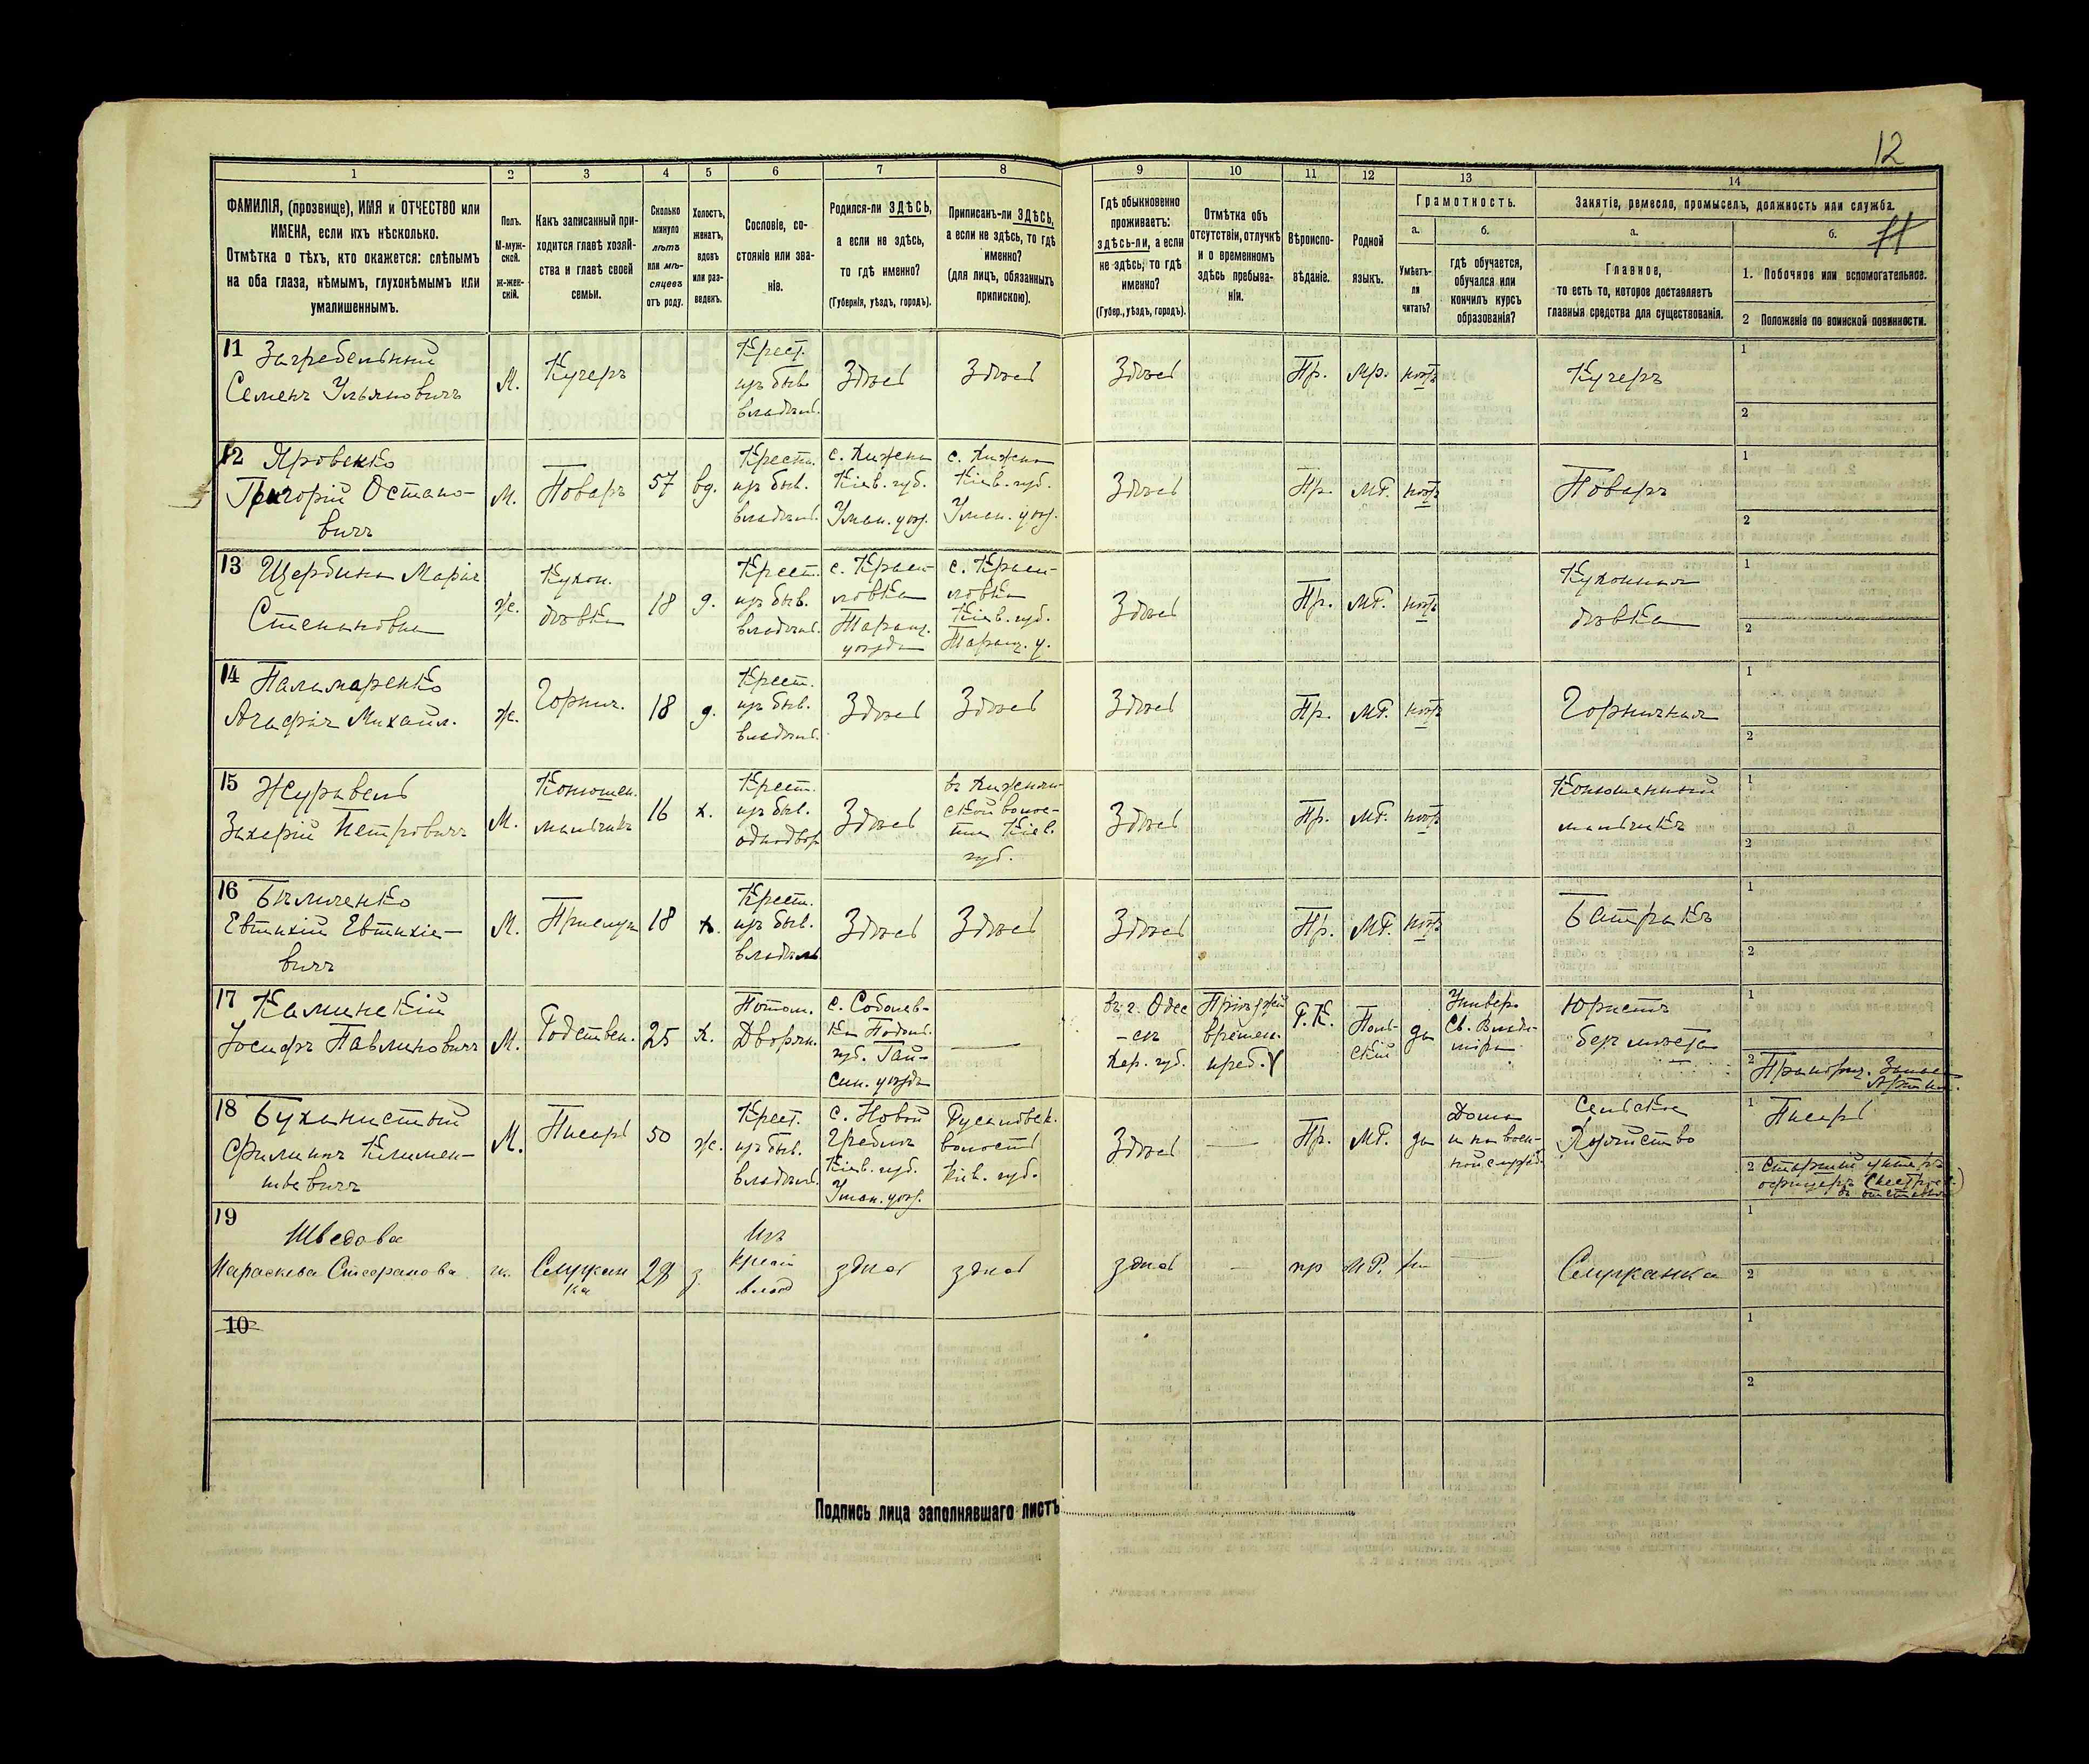 12
1 2 3 4 5 6 7 8 9 10 11 12 13 14
ФАМИЛІЯ, (прозвище), ИМЯ и ОТЧЕСТВО или
ИМЕНА, если ихъ нѣсколько.
Отмѣтка о тѣхъ, кто окажется: слѣпымъ
на оба глаза, нѣмымъ, глухонѣмымъ или
умалишеннымъ.
Полъ.
М-муж-
ской.
ж-жен-
скій.
Какъ записанный при-
ходится главѣ хозяй-
ства и главѣ своей
семьи.
Сколько
минуло
лѣтъ
или мѣ-
сяцевъ
отъ роду.
Холостъ,
женатъ,
вдовъ
или раз-
веденъ.
Сословіе, со-
стояніе или зва-
ніе.
Родился-ли ЗДѢСЬ,
а если не здѣсь,
то гдѣ именно?
(Губернія, уѣздъ, городъ).
Приписанъ-ли ЗДѢСЬ,
а если не здѣсь, то гдѣ
именно?
(для лицъ, обязанныхъ
припискою).
Гдѣ обыкновенно
проживаетъ:
здѣсь-ли, а если
не здѣсь, то гдѣ
именно?
(Губер., уѣздъ, городъ).
Отмѣтка объ
отсутствіи, отлучкѣ
и о временномъ
здѣсь пребыва-
ніи.
Вѣроиспо-
вѣданіе.
Родной
языкъ.
Грамотность.
а.
Умѣетъ-
ли
читать?
б.
гдѣ обучается,
обучался или
кончилъ курсъ
образованія?
Занятіе, ремесло, промыселъ, должность или служба.
а.
Главное,
то есть то, которое доставляетъ
главныя средства для существованія.
б.
11
1. Побочное или вспомогательное.
2 Положеніе по воинской повинности.
11 Загребельный
Семенъ Ульяновичъ
М.
Кучеръ
Крест.
изъ быв.
владѣл.
Здѣсь
Здѣсь
Здѣсь
Пр.
Мр.
нѣтъ
Кучеръ
1
2
12 Яровенко
Григорій Остапо-
вичъ
М.
Поваръ
57
вд.
Крест.
изъ быв.
владѣл.
с.
Кіев. губ.
Уман. уѣз.
с.
Кіев. губ.
Уман. уѣз.
Здѣсь
Пр.
МР.
нѣтъ
Поваръ
1
2
13 Щербина Марія
Степановна
ж.
Кухон.
дѣвка
18
д.
Крест.
изъ быв.
владѣл.
с.
ловка
Таращ.
уѣзда
с.
ловка
Кіев. губ.
Таращ. у.
Здѣсь
Пр.
МР.
нѣтъ
Кухонная
дѣвка
1
2
14 Паламаренко
Агафія Михайл.
ж.
Горнич.
18
д.
Крест.
изъ быв.
владѣл.
Здѣсь
Здѣсь
Здѣсь
Пр.
МР.
нѣтъ
Горничная
1
2
15 Журавель
Захарій Петровичъ
М.
Конюшен.
мальчикъ
16
х.
Крест.
изъ быв.
однодвор.
Здѣсь
ской волос-
ти Кіев.
губ.
Здѣсь
Пр.
МР.
нѣтъ
Конюшенный
мальчикъ
1
2
16
Евтихій Евтихіе-
вичъ
М.
Прислуга
18
х.
Крест.
изъ быв.
владѣль
Здѣсь
Здѣсь
Здѣсь
Пр.
МР.
нѣтъ
Батракъ
1
2
17 Каминскій
Іосифъ Павлиновичъ
М.
Родствен.
25
х.
Потом.
Дворян.
с. Соболев-
ка Подол.
губ. Гай-
син. уѣзда
—
въ г. Одес
-сѣ
Хер. губ.
Пріѣзжій
времен.
преб.
Р.К.
Поль-
скій
да
Универ.
Св. Влади-
міра
Юристъ
безъ мѣста
1
2 Прапорщ. Запаса
Артил.
18 Буханистый
Филиппъ Климен-
тьевичъ
М.
Писарь
50
ж.
Крест.
изъ быв.
владѣл.
с. Новой
Гребли
Кіев. губ.
Уман. уѣз.
Русаловск.
волости
Кіев. губ.
Здѣсь
—
Пр.
МР.
да
Дома
и на воен-
ной служб.
Сельское
Хозяйство
1 Писарь
2 Старшій унтеръ
офицеръ
въ отставкѣ
19
Шведова
Параскева Стефанова
ж.
Служан
ка
28
з.
Изъ
крест
влад
здѣсь
здѣсь
здѣсь
—
пр
МР.
—
Служанка
1
2
10
1
2
Подпись лица заполнявшаго листъ